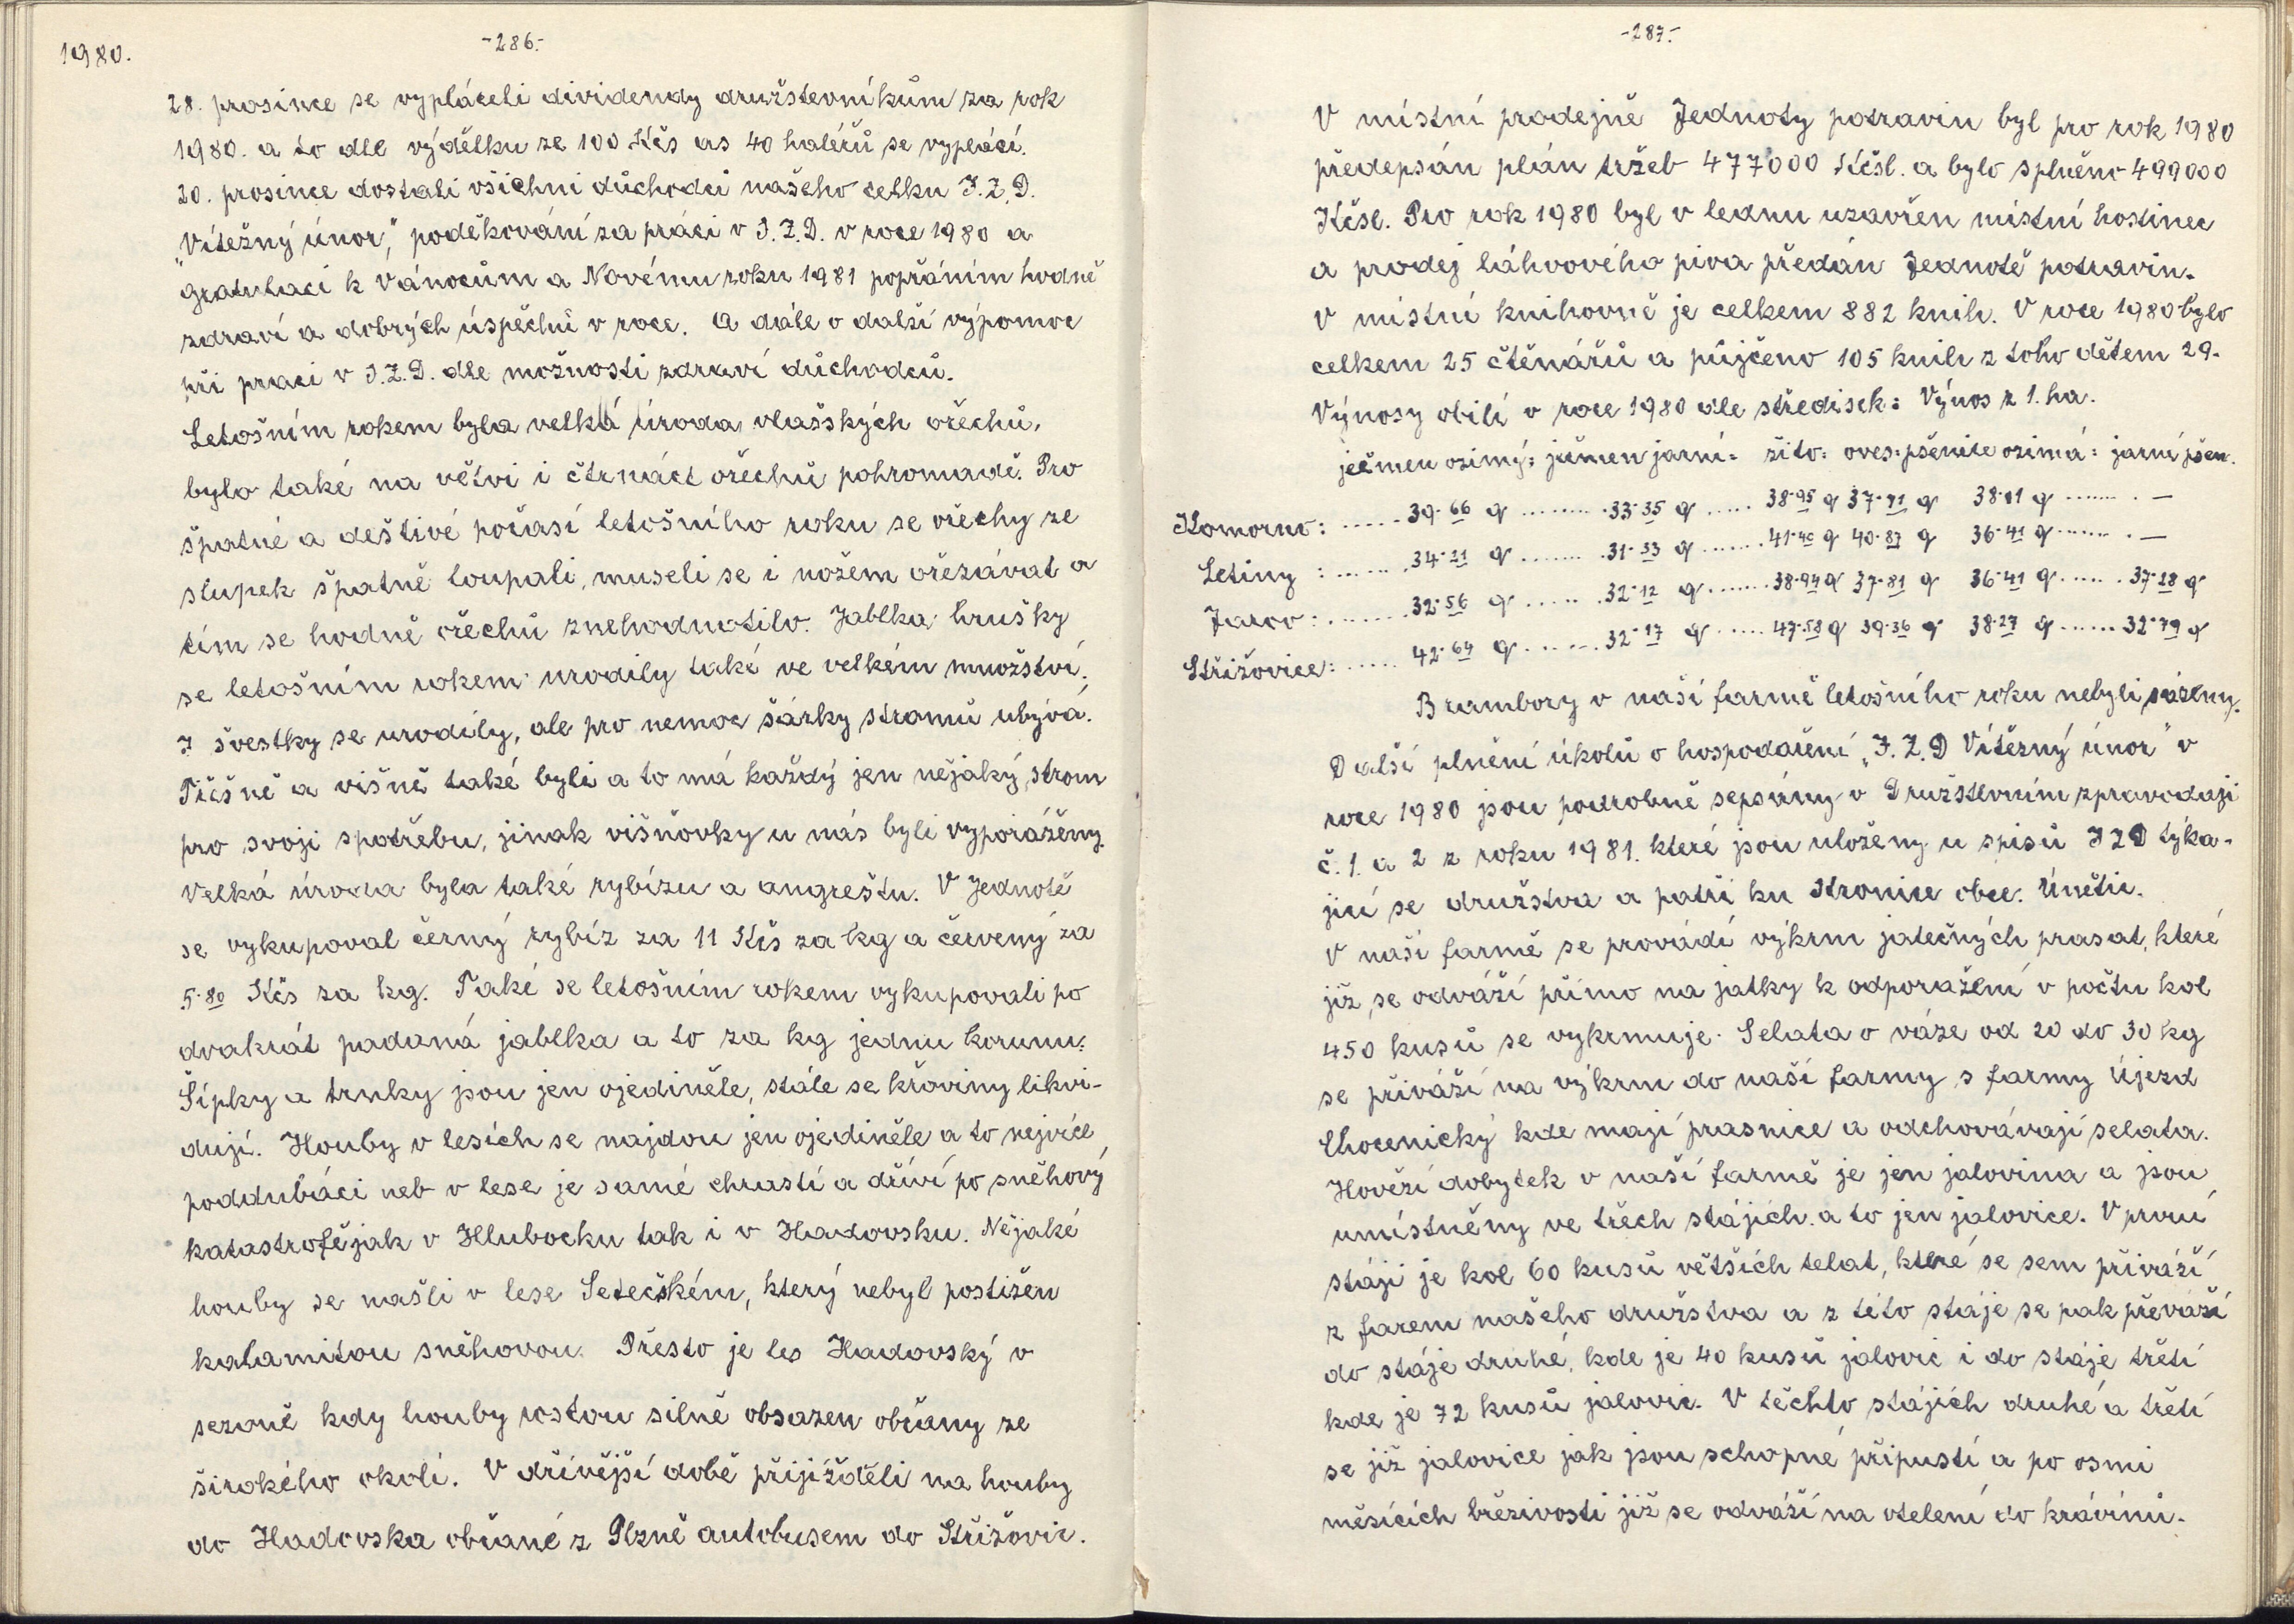 1980.
-286.-
28. prosince se vypláceli dividendy družstevníkům za rok
1980. a to dle výdělku ze 100 Kčs as 40 haléřů se vyplácí.
20. prosince dostali všichni důchodci našeho celku J.Z.D.
"Vítežný únor," poděkování za práci v J.Z.D. v roce 1980 a
gratulaci k Vánocům a Novému roku 1981 popřáním hodně
zdraví a dobrých úspěchů v roce. A dále o další výpomoc
při praci v J.Z.D. dle možnosti zdraví důchodců.
Letošním rokem byla velká úroda vlašských ořechů,
bylo také na větvi i čtrnáct ořechů pohromadě. Pro
špatné a deštivé počasí letošního roku se ořechy ze
slupek špatně loupali, museli se i nožem ořezávat a
tím se hodně ořechů znehodnotilo. Jablka hrušky
se letošním rokem urodily také ve velkém množství.
I švestky se urodily, ale pro nemoc šárky stromů ubývá.
Třěšně a višně také byli a to má každý jen nějaký strom
pro svoji spotřebu, jinak višňovky u nás byli vyporáženy.
Velká úroda byla také rybízu a angreštu. V Jednotě
se vykupoval černý rybíz za 11 Kčs za kg a červený za
5.80 Kčs za kg. Také se letošním rokem vykupovali po
dvakrát padaná jablka a to za kg jednu korunu.
Šípky a trnky jsou jen ojediněle, stále se křoviny likvi-
dují. Houby v lesích se najdou jen ojediněle a to nejvíce
poddubáci neb v lese je samé chrastí a dříví po sněhový
katastrofě jak v Hlubocku tak i v Hadovsku. Nějaké
houby se našli v lese Setečském, který nebyl postižen
kalamitou sněhovou. Přesto je les Hadovský v
sezoně kdy houby rostou silně obsazen občany ze
širokého okolí. V dřívější době přijížděli na houby
do Hadovska občané z Plzně autobusem do Střížovic.
-287.-
V místní prodejně Jednoty potravin byl pro rok 1980
předepsán plán tržeb 477000 Kčsl. a bylo splněno 499000
Kčsl. Pro rok 1980 byl v lednu uzavřen místní hostinec
a prodej láhvového piva předán Jednotě potravin.
V místní knihovně je celkem 882 knih. V roce 1980 bylo
celkem 25 čtěnářů a půjčeno 105 knih z toho dětem 29.
Výnosy obilí v roce 1980 dle středisek: Výnos z 1. ha.
ječmen ozimý: ječmen jarní: žito: oves: pšenice ozimá: jarní pšen.
Komorno: ...... 39.66 q ......... 33.35 q ..... 38.95 q 37.71 q 38.01 q ....... . —
Letiny : ....... 34.21 q ....... 31.53 q ...... 41.40 q 40.87 q 36.41 q ...... . —
Jarov : ........ 32.56 q ...... 32.12 q ....... 38.94 q 37.81 q 36.41 q ..... . 37.28 q
Střižovice: ..... 42.64 q ....... 32.17 q ..... 47.58 q 39.36 q 38.27 q ...... 32.79 q
Brambory v naší farmě letošního roku nebyli sázeny.
Další plnění úkolů o hospodaření „J.Z.D Vítězný únor" v
roce 1980 jsou podrobně sepsány v Družstevním zpravodaji
č. 1. a 2 z roku 1981. které jsou uloženy u spisů JZD týka-
jící se družstva a patří ku Kronice obce. Únětic.
V naší farmě se provádí výkrm jatečných prasat, které
již se odváží přímo na jatky k odporážení v počtu kol
450 kusů se vykrmuje. Selata o váze od 20 do 30 kg
se přiváží na výkrm do naší farmy s farmy Újezd
Chocenický kde mají prasnice a odchovávají selata.
Hovězí dobytek v naší farmě je jen jalovina a jsou
umístněny ve třech stájích. a to jen jalovice. V první
stáji je kol 60 kusů větších telat, které se sem přiváží
z farem našeho družstva a z této stáje se pak převáží
do stáje druhé, kde je 40 kusů jalovic i do stáje třetí
kde je 72 kusů jalovic. V těchto stájích druhé a třetí
se již jalovice jak jsou schopné připustí a po osmi
měsících březivosti již se odváží na otelení do kravínů.